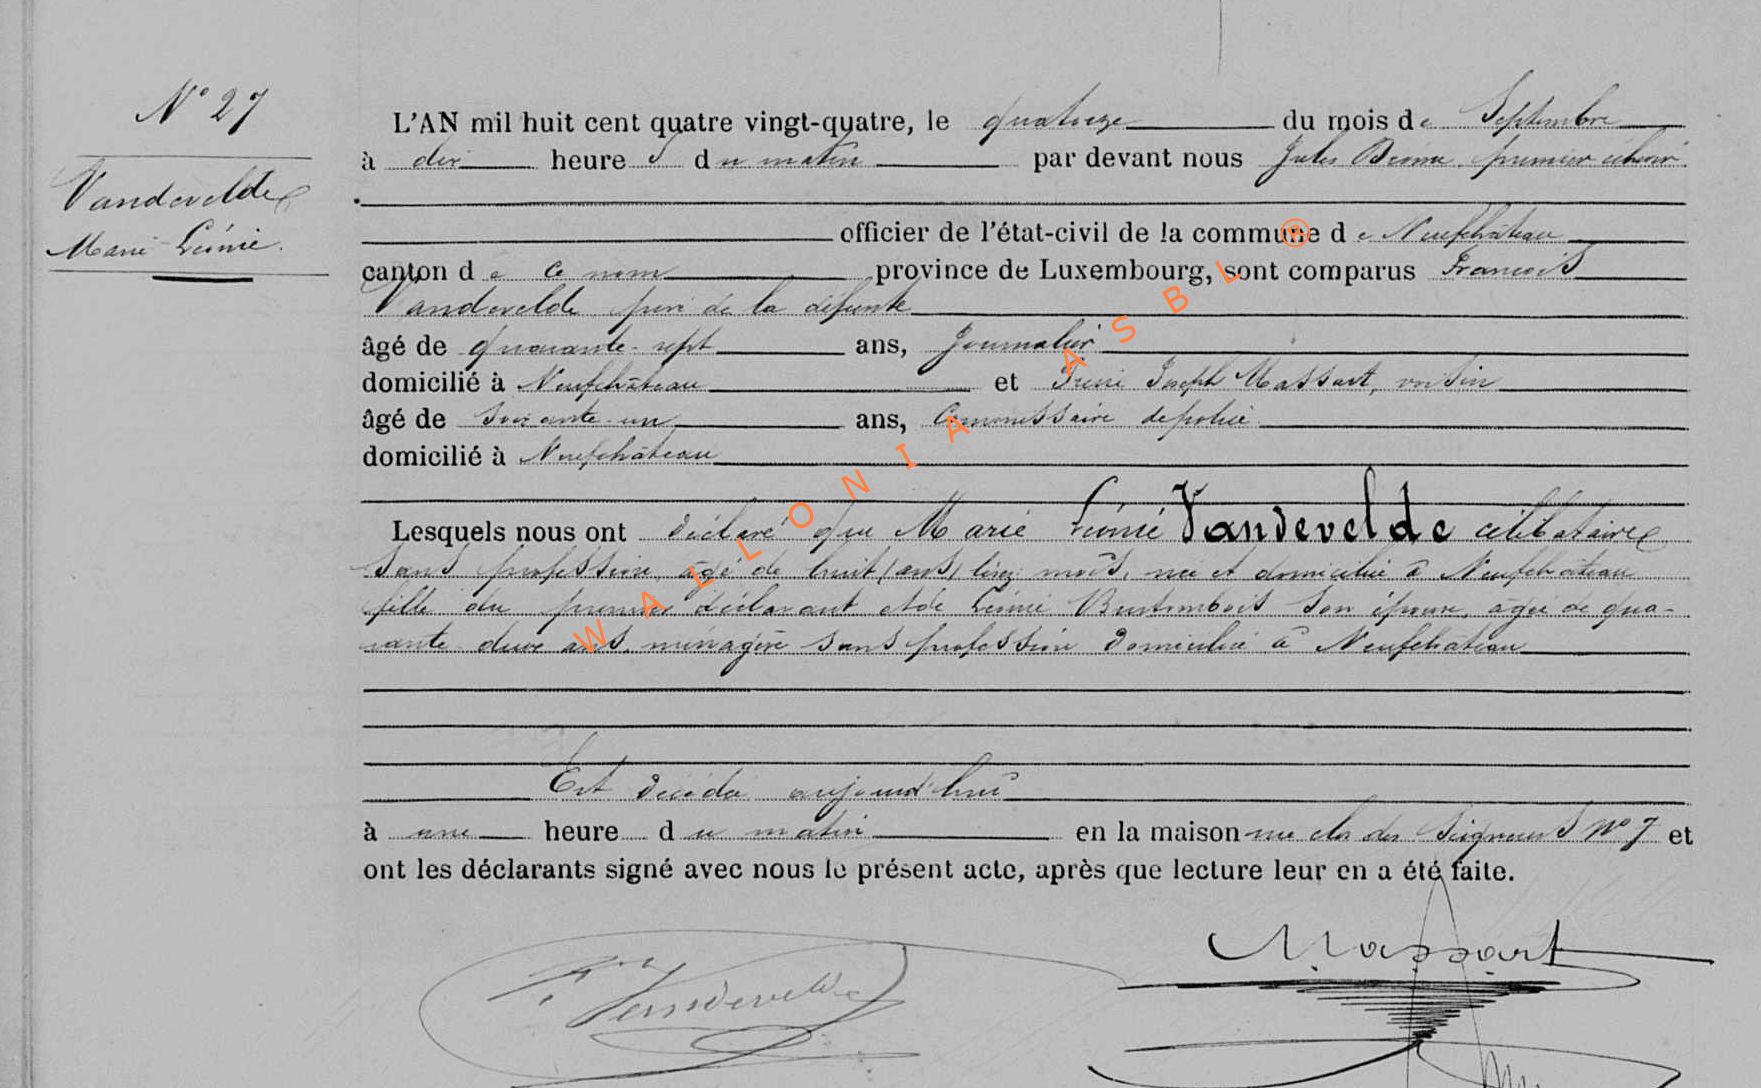 N° 27
Vandevelde
Marie Léonie.
L'AN mil huit cent quatre vingt-quatre, le quatorze du mois de Septembre
à dix heures du matin par devant nous Jules premier échevin
officier de l'état-civil de la commune de Neufchâteau
canton de ce nom province de Luxembourg, sont comparus François
Vandevelde père de la défunte
âgé de quarante-sept ans, Journalier
domicilié à Neufchâteau et Joseph Massart, voisin
âgé de soixante-un ans, Commissaire de police
domicilié à Neufchâteau
Lesquels nous ont déclaré que Marie Léonie Vandevelde célibataire
sans profession, âgé de huit (ans) lisez mois, née et domiciliée à Neufchâteau
fille du premier déclarant et de Léonie son épouse, âgée de qua-
rante-deux ans, ménagère sans profession domiciliée à Neufchâteau
Est décédée aujourd'hui
à une heure du matin en la maison rue clos des Seigneurs N° 7 et
ont les déclarants signé avec nous le présent acte, après que lecture leur en a été faite.
F. Vandevelde
Massart
WALLONIA ASBL ®